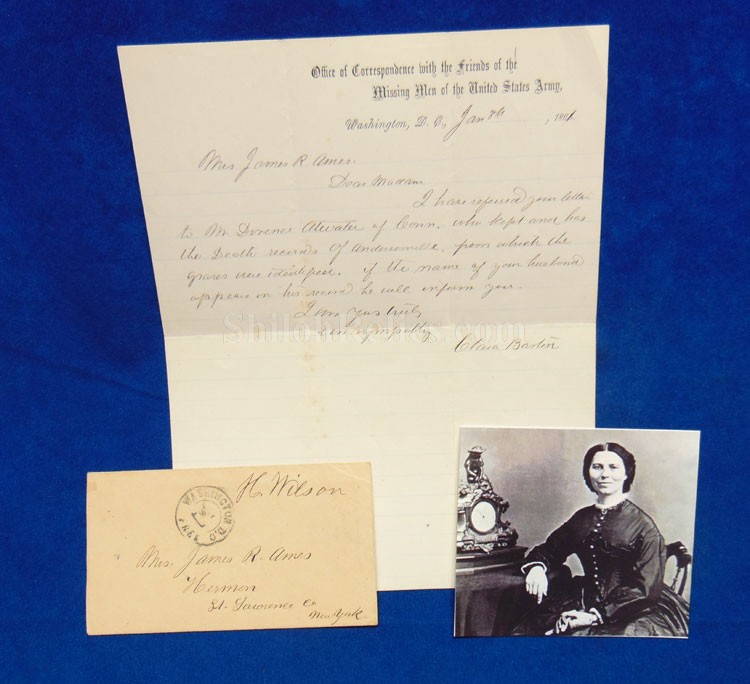 Office of Correspondence with the Friends of the
Missing Men of the United States Army,
Washington, D. C., Jan 8th, 186
Mrs James R Ames.
Dear Madam
I have referred your letter
to Mr Dorence Atwater of Conn. who kept and has
the Death records of Andersonville, from which the
graves were identified. if the name of your husband
appears on his record he will inform you.
I am yours truly
in sympathy
Clara Barton
ShilohRelics.com
H. Wilson
WASHINGTON D.C.
FREE
Mrs. James R. Ames
Hermon
St. Lawrence Co
New York